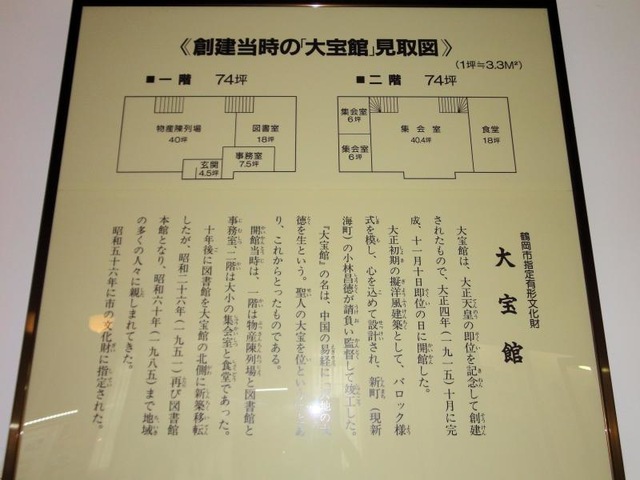 《創建当時の「大宝館」見取図》
(1坪≒3.3M²)
■一階 74坪
■二階 74坪
物産陳列場
40坪
図書室
18坪
事務室
7.5坪
玄関
4.5坪
集会室
6坪
集会室
6坪
集会室
40.4坪
食堂
18坪
鶴岡市指定有形文化財
大宝館
大宝館は、大正天皇の即位を記念して創建
されたもので、大正四年(一九一五)十月に完
成、十一月十日即位の日に開館した。
大正初期の擬洋風建築として、バロック様
式を模し、心を込めて設計され、新町(現新
海町)の小林昌徳が請負い監督して竣工した。
『大宝館』の名は、中国の易経に
徳を生という。聖人の大宝を位という
り、これからとったものである。
開館当時は、一階は物産陳列場と図書館と
事務室、二階は大小の集会室と食堂であった。
十年後に図書館を大宝館の北側に新築移転
したが、昭和二十六年(一九五一)再び図書館
本館となり、昭和六十年(一九八五)まで地域
の多くの人々に親しまれてきた。
昭和五十六年に市の文化財に指定された。